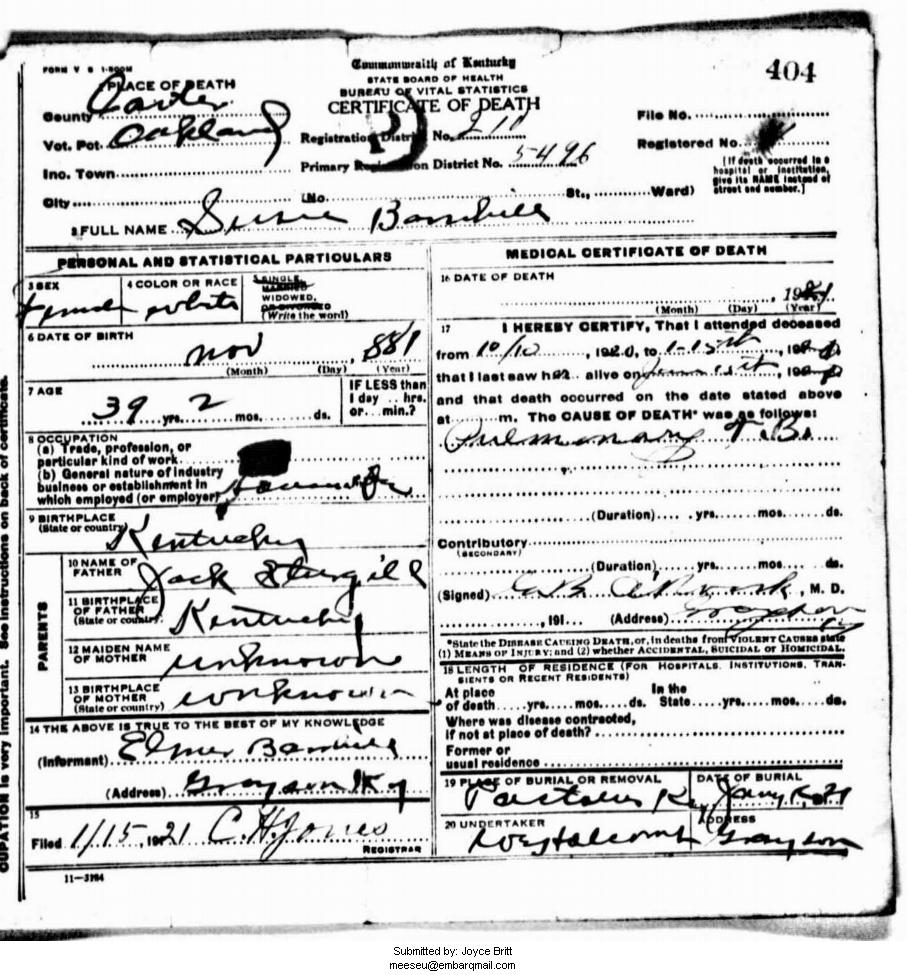 FORM V S 1-500M
Commonwealth of Kentucky
404
PLACE OF DEATH
STATE BOARD OF HEALTH
BUREAU OF VITAL STATISTICS
CERTIFICATE OF DEATH
County Carter
Vot. Pct. Oakland
Registration District No. 210
File No.
Primary Registration District No. 5496
Registered No.
Inc. Town
[If death occurred in a hospital or institution, give its NAME instead of street and number.]
City (No. St., Ward)
2 FULL NAME Susie Barnhill
PERSONAL AND STATISTICAL PARTICULARS
3 SEX female
4 COLOR OR RACE white
5 SINGLE, MARRIED WIDOWED, OR DIVORCED (Write the word)
6 DATE OF BIRTH
Nov , 881
(Month) (Day) (Year)
7 AGE
39 yrs. 2 mos. ds.
IF LESS than 1 day .. hrs. or... min.?
8 OCCUPATION
(a) Trade, profession, or
particular kind of work
(b) General nature of industry
business or establishment in
which employed (or employer)
9 BIRTHPLACE
(State or country) Kentucky
PARENTS
10 NAME OF FATHER Jack Sturgill
11 BIRTHPLACE OF FATHER (State or country) Kentucky
12 MAIDEN NAME OF MOTHER unknown
13 BIRTHPLACE OF MOTHER (State or country) unknown
14 THE ABOVE IS TRUE TO THE BEST OF MY KNOWLEDGE
(Informant) Elmer Barnhill
(Address) Grayson Ky
15
Filed 1/15, 1921 C. H. Jones
REGISTRAR
11-3184
MEDICAL CERTIFICATE OF DEATH
16 DATE OF DEATH
, 1921
(Month) (Day) (Year)
17 I HEREBY CERTIFY, That I attended deceased
from 10/10, 1920, to 1-15st, 192
that I last saw her alive on 15st, 192
and that death occurred on the date stated above
at m. The CAUSE OF DEATH* was as follows:
Pulmonary T.B.
(Duration) yrs. mos. ds.
Contributory
(SECONDARY)
(Duration) yrs. mos. ds.
(Signed) , M. D.
, 191 (Address) Grayson Ky
*State the DISEASE CAUSING DEATH, or, in deaths from VIOLENT CAUSES state
(1) MEANS OF INJURY; and (2) whether ACCIDENTAL, SUICIDAL or HOMICIDAL.
18 LENGTH OF RESIDENCE (FOR HOSPITALS, INSTITUTIONS, TRANSIENTS OR RECENT RESIDENTS)
At place of death yrs. mos. ds. In the State yrs. mos. ds.
Where was disease contracted,
if not at place of death?
Former or
usual residence
19 PLACE OF BURIAL OR REMOVAL
DATE OF BURIAL
20 UNDERTAKER
ADDRESS
Roy Holcomb Grayson
CUPATION is very important. See instructions on back of certificate.
Submitted by: Joyce Britt
meeseu@embarqmail.com